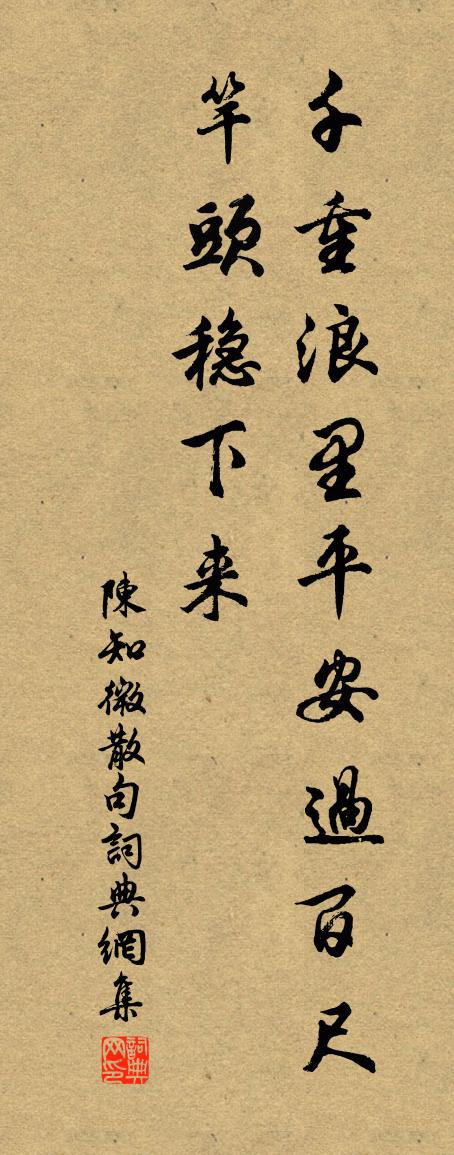 千重浪里平安過百尺
竿頭穏下来
陳知微散句詞典網集
詞典
网印